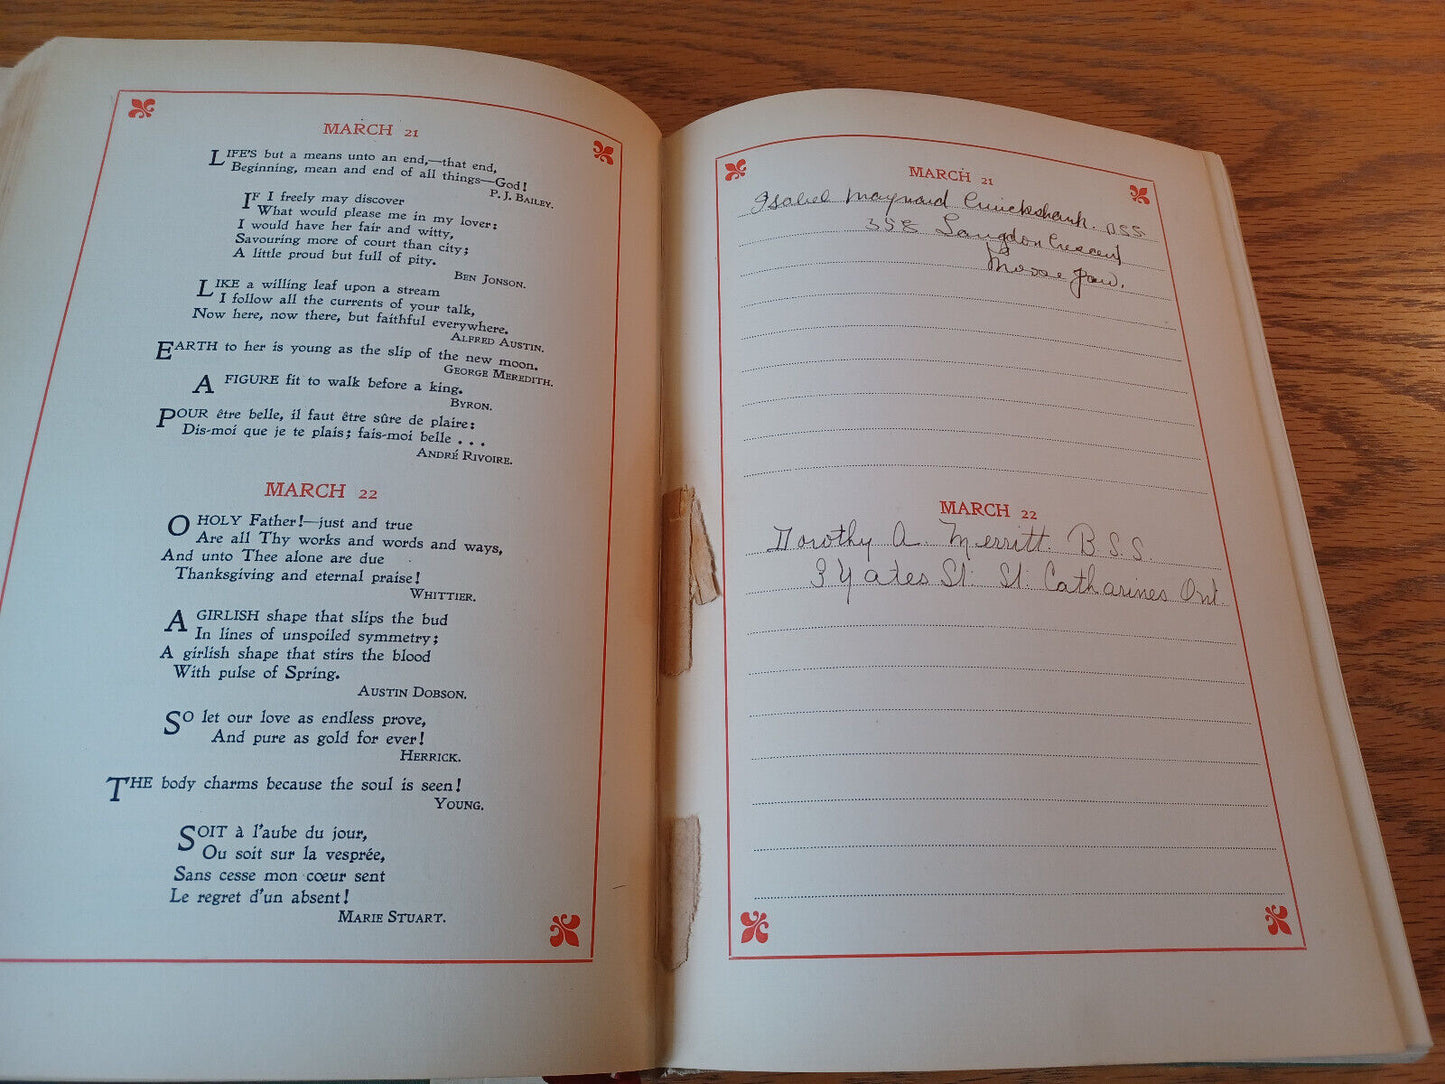 MARCH 21
LIFE'S but a means unto an end,—that end,
Beginning, mean and end of all things—God!
P. J. BAILEY.
IF I freely may discover
What would please me in my lover:
I would have her fair and witty,
Savouring more of court than city;
A little proud but full of pity.
BEN JONSON.
LIKE a willing leaf upon a stream
I follow all the currents of your talk,
Now here, now there, but faithful everywhere.
ALFRED AUSTIN.
EARTH to her is young as the slip of the new moon.
GEORGE MEREDITH.
A FIGURE fit to walk before a king.
BYRON.
POUR être belle, il faut être sûre de plaire:
Dis-moi que je te plais; fais-moi belle . . .
ANDRÉ RIVOIRE.
MARCH 22
O HOLY Father!—just and true
Are all Thy works and words and ways,
And unto Thee alone are due
Thanksgiving and eternal praise!
WHITTIER.
A GIRLISH shape that slips the bud
In lines of unspoiled symmetry;
A girlish shape that stirs the blood
With pulse of Spring.
AUSTIN DOBSON.
SO let our love as endless prove,
And pure as gold for ever!
HERRICK.
THE body charms because the soul is seen!
YOUNG.
SOIT à l'aube du jour,
Ou soit sur la vesprée,
Sans cesse mon cœur sent
Le regret d'un absent!
MARIE STUART.
MARCH 21
Isabel Maynard Cruickshank.
358 Langdon Crescent
Moose Jaw.
MARCH 22
Dorothy A. Merritt. B.S.S.
3 Yates St. St. Catharines Ont.